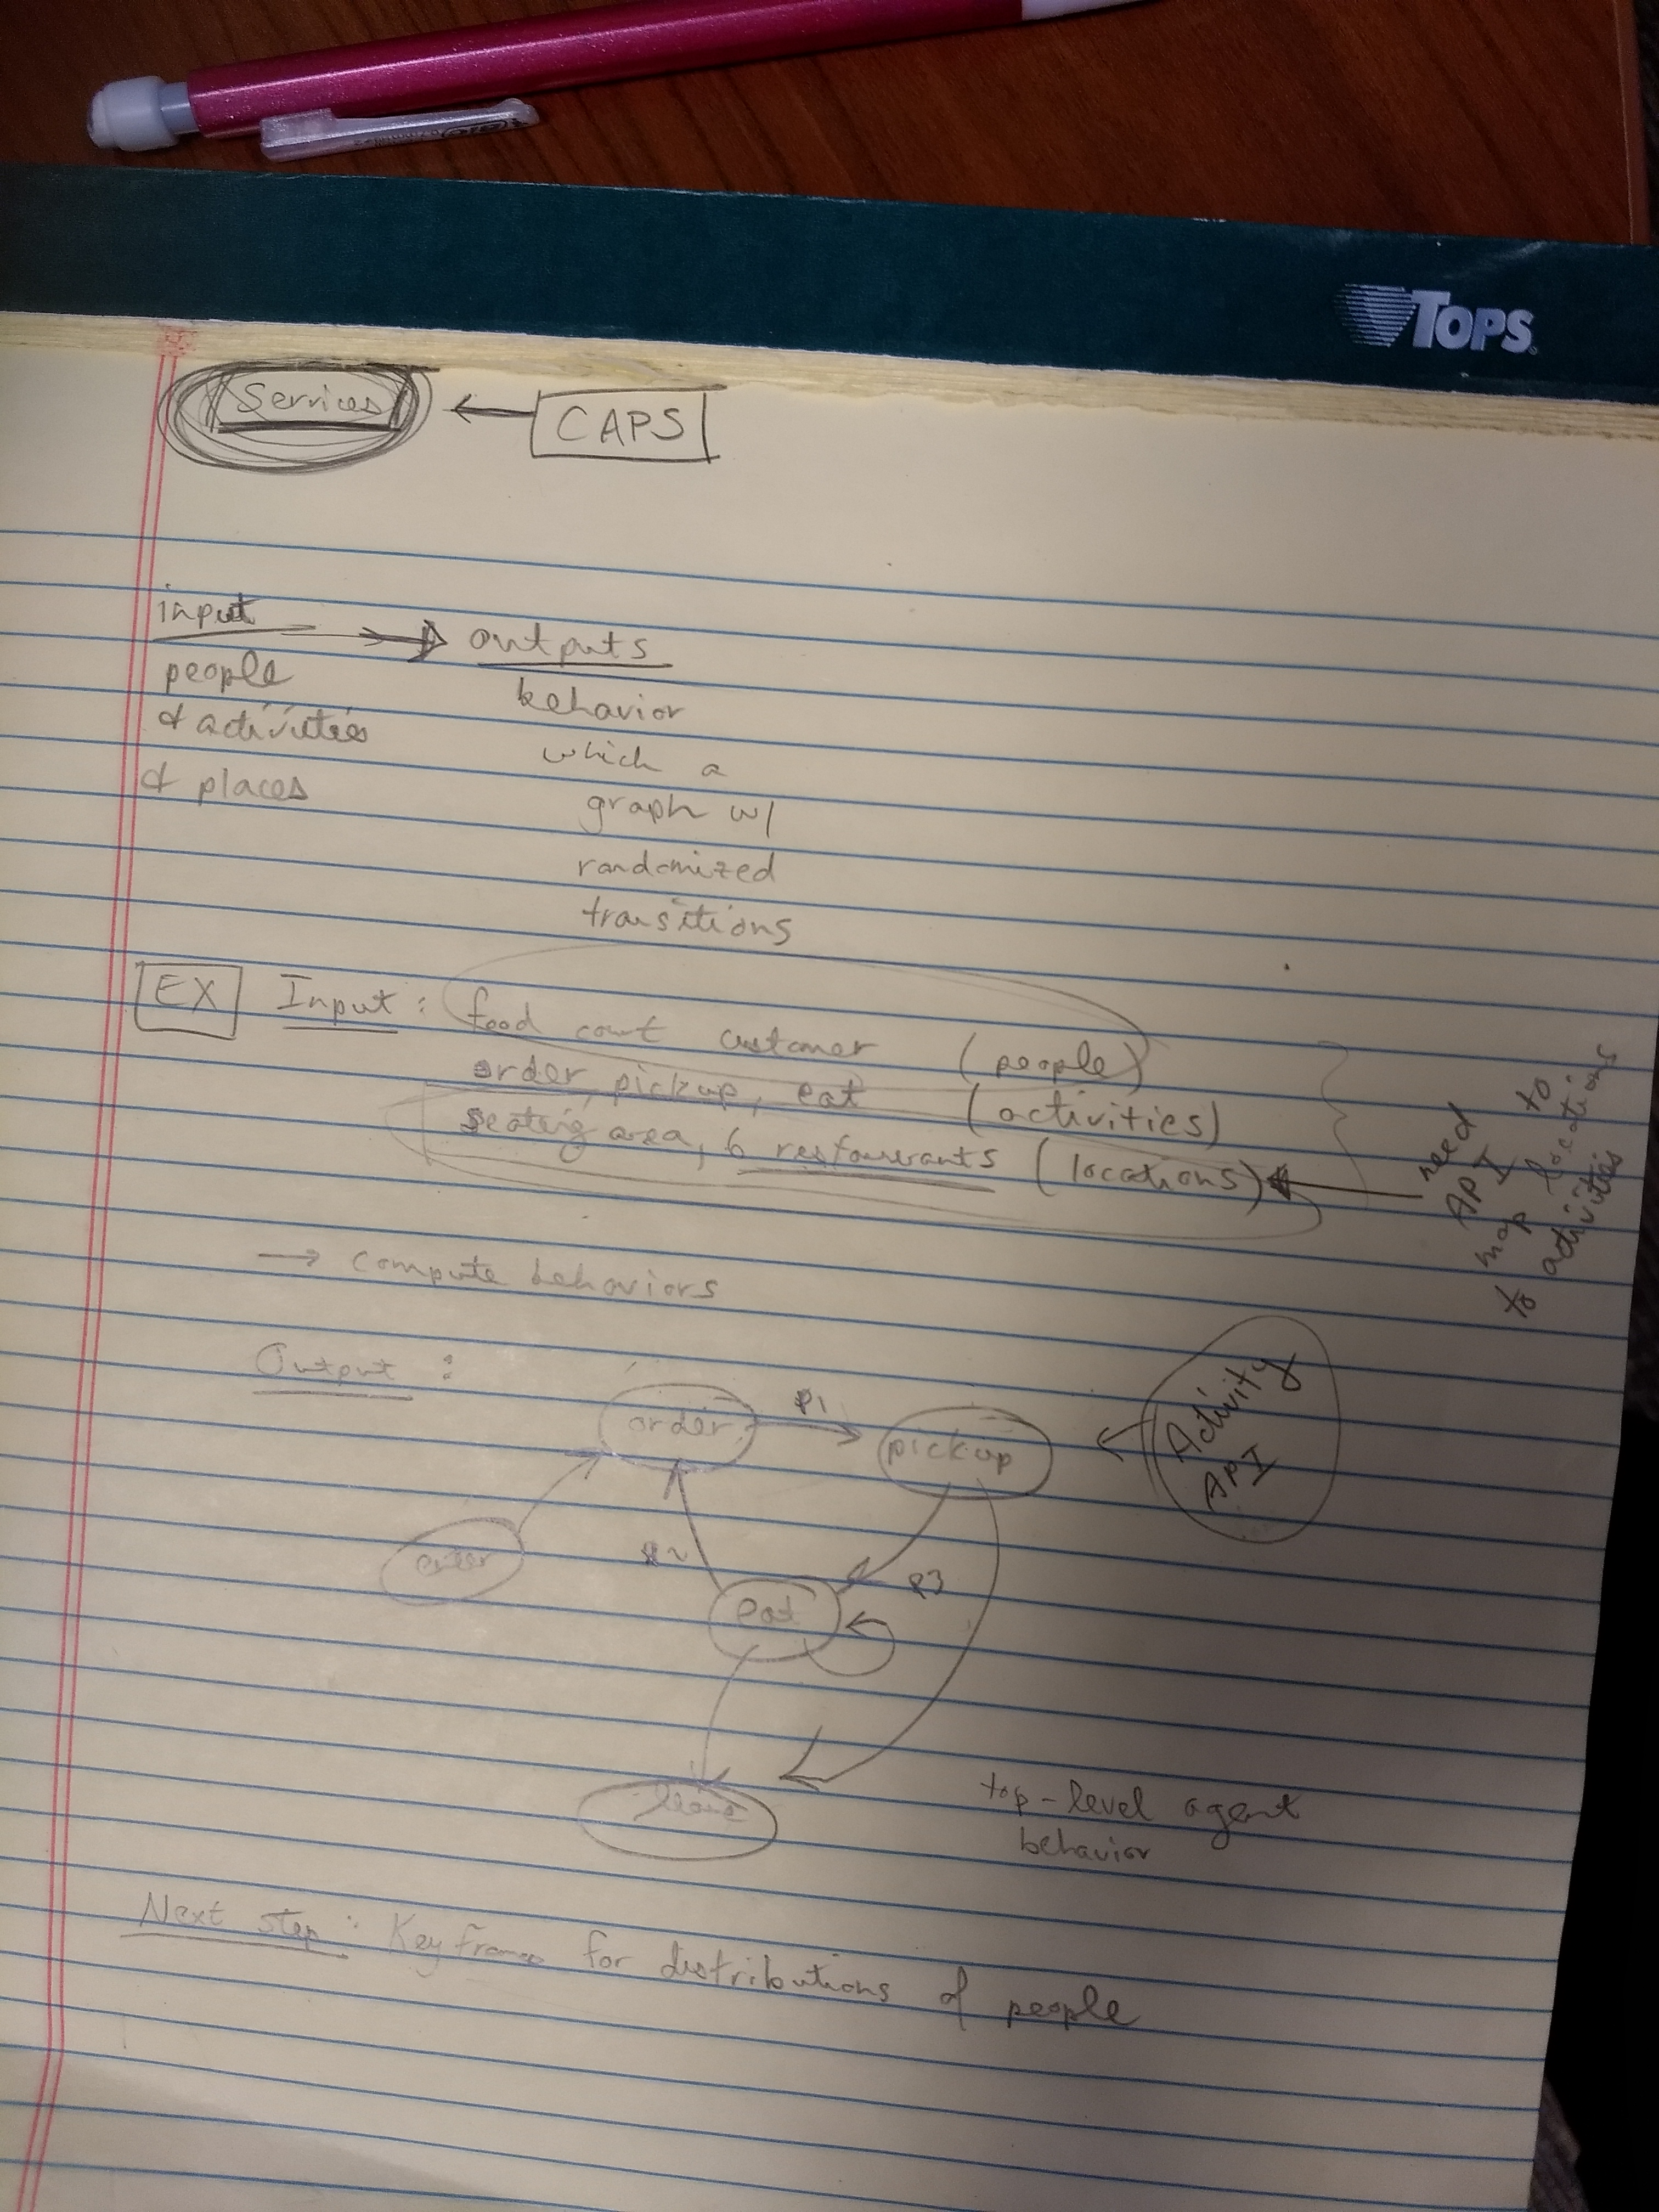 BIC
TOPS
Services ← CAPS
input → outputs
people
& activities
& places
behavior
which a
graph w/
randomized
transitions
EX Input: food court customer (people)
order, pickup, eat (activities)
seating area, 6 restaurants (locations)
need
API to
map locations
to activities
→ compute behaviors
Output:
order
P1
pickup
Activity
API
enter
P2
P3
eat
leave
top-level agent
behavior
Next step: Keyframes for distributions of people